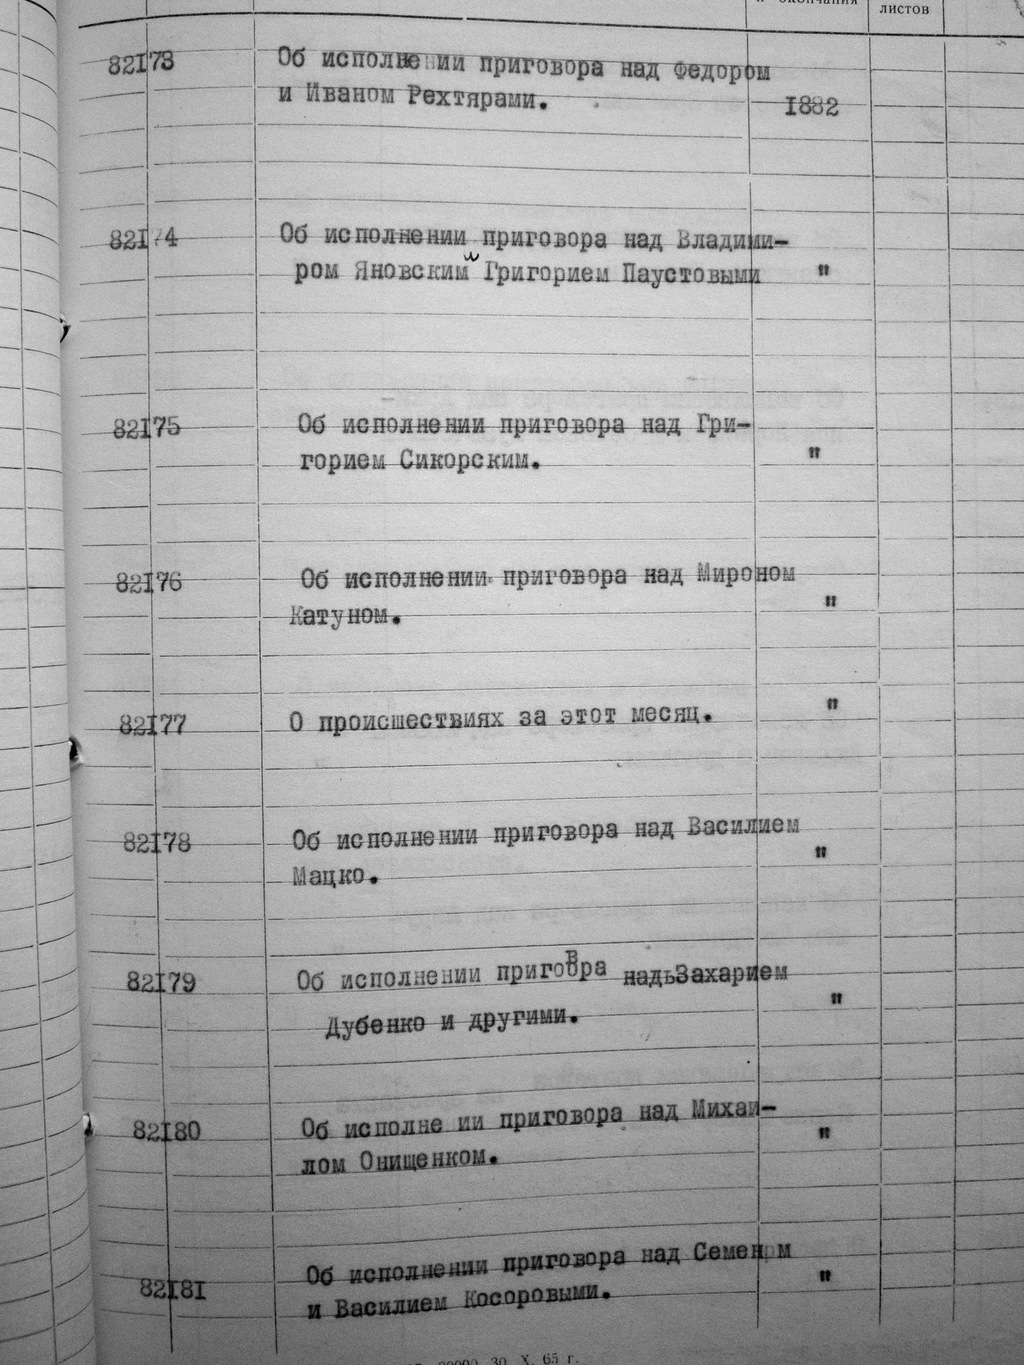 и окончания
листов
82173 Об исполнении приговора над Федором
и Иваном Рехтярами. 1882
82174 Об исполнении приговора над Владими-
ром Яновским и Григорием Паустовыми "
82175 Об исполнении приговора над Гри-
горием Сикорским. "
82176 Об исполнении приговора над Мироном
Катуном. "
82177 О происшествиях за этот месяц. "
82178 Об исполнении приговора над Василием
Мацко. "
82179 Об исполнении приговора надьЗахарием
Дубенко и другими. "
82180 Об исполне ии приговора над Михаи-
лом Онищенком. "
82181 Об исполнении приговора над Семеном
и Василием Косоровыми. "
30. X. 65 г.